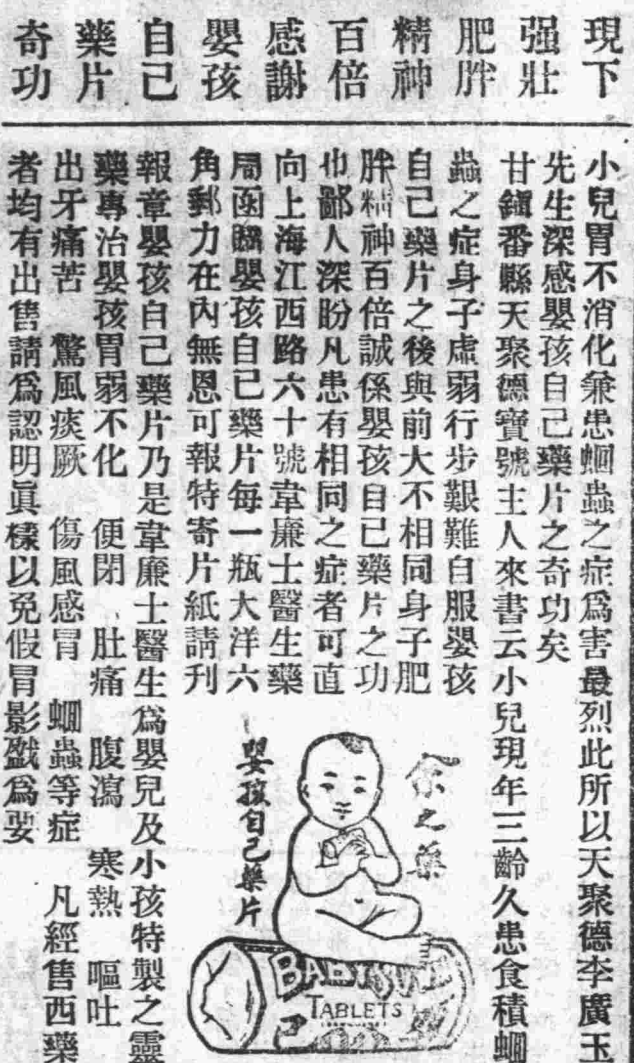 現下
强壯
肥胖
精神
百倍
感謝
嬰孩
自己
藥片
奇功
小兒胃不消化兼患蛔蟲之症爲害最烈此所以天聚德李廣玉
先生深感嬰孩自己藥片之奇功矣
甘鎭番縣天聚德寶號主人來書云小兒現年三齡久患食積蛔
蟲之症身子虛弱行步艱難自服嬰孩
自己藥片之後與前大不相同身子肥
胖精神百倍誠係嬰孩自己藥片之功
也鄙人深盼凡患有相同之症者可直
向上海江西路六十號韋廉士醫生藥
局函購嬰孩自己藥片每一瓶大洋六
角郵力在內無恩可報特寄片紙請刊
余之藥
嬰孩自己藥片
TABLETS
報章嬰孩自己藥片乃是韋廉士醫生爲嬰兒及小孩特製之靈
藥專治嬰孩胃弱不化 便閉 肚痛 腹瀉 寒熱 嘔吐
出牙痛苦 驚風痰厥 傷風感冒 蛔蟲等症 凡經售西藥
者均有出售請爲認明眞樣以免假冒影戤爲要